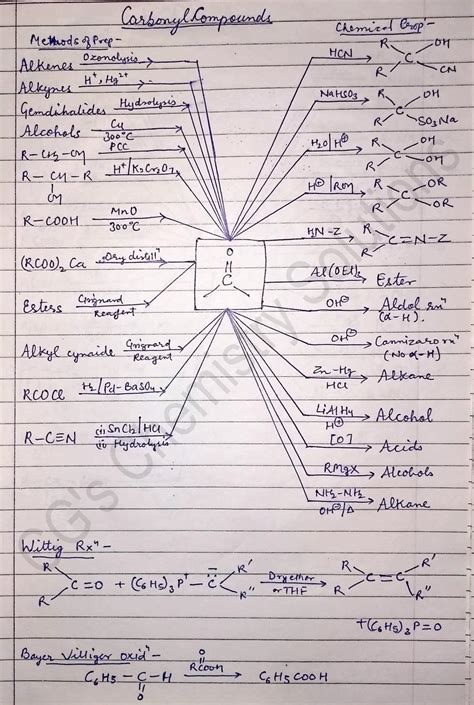 Carbonyl Compounds
Methods of Prep-
Alkenes Ozonolysis
Alkynes H⁺, Hg²⁺
Gemdihalides Hydrolysis
Alcohols Cu 300°C
R-CH₂-OH PCC
R-CH-R H⁺/K₂Cr₂O₇
OH
R-COOH MnO 300°C
(RCOO)₂Ca Dry distillⁿ
Esters Grignard Reagent
Alkyl cynaide Grignard Reagent
RCOCl H₂/Pd-BaSO₄
R-C≡N (i) SnCl₂/HCl
(ii) Hydrolysis
O
C
Chemical Prop-
HCN R R C OH CN
NaHSO₃ R R C OH SO₃Na
H₂O/H⊕ R R C OH OH
H⊕/ROH R R C OR OR
H₂N-Z R R C=N-Z
Al(OEt)₃ Ester
OH⊖ Aldol rxⁿ
(α-H).
OH⊖ Cannizaro rxⁿ
(No α-H)
Zn-Hg HCl Alkane
LiAlH₄ H⊕ Alcohol
[O] Acids
RMgX Alcohols
NH₂-NH₂ OH⊖/Δ Alkane
Wittig Rxⁿ-
R R C=O + (C₆H₅)₃P⁺-C̄ R' R'' Dry ether or THF R R C=C R' R''
+(C₆H₅)₃P=O
Bayer Villiger oxidⁿ-
C₆H₅-C-H O RCOOH O C₆H₅COOH
CG's Chemistry Solutions